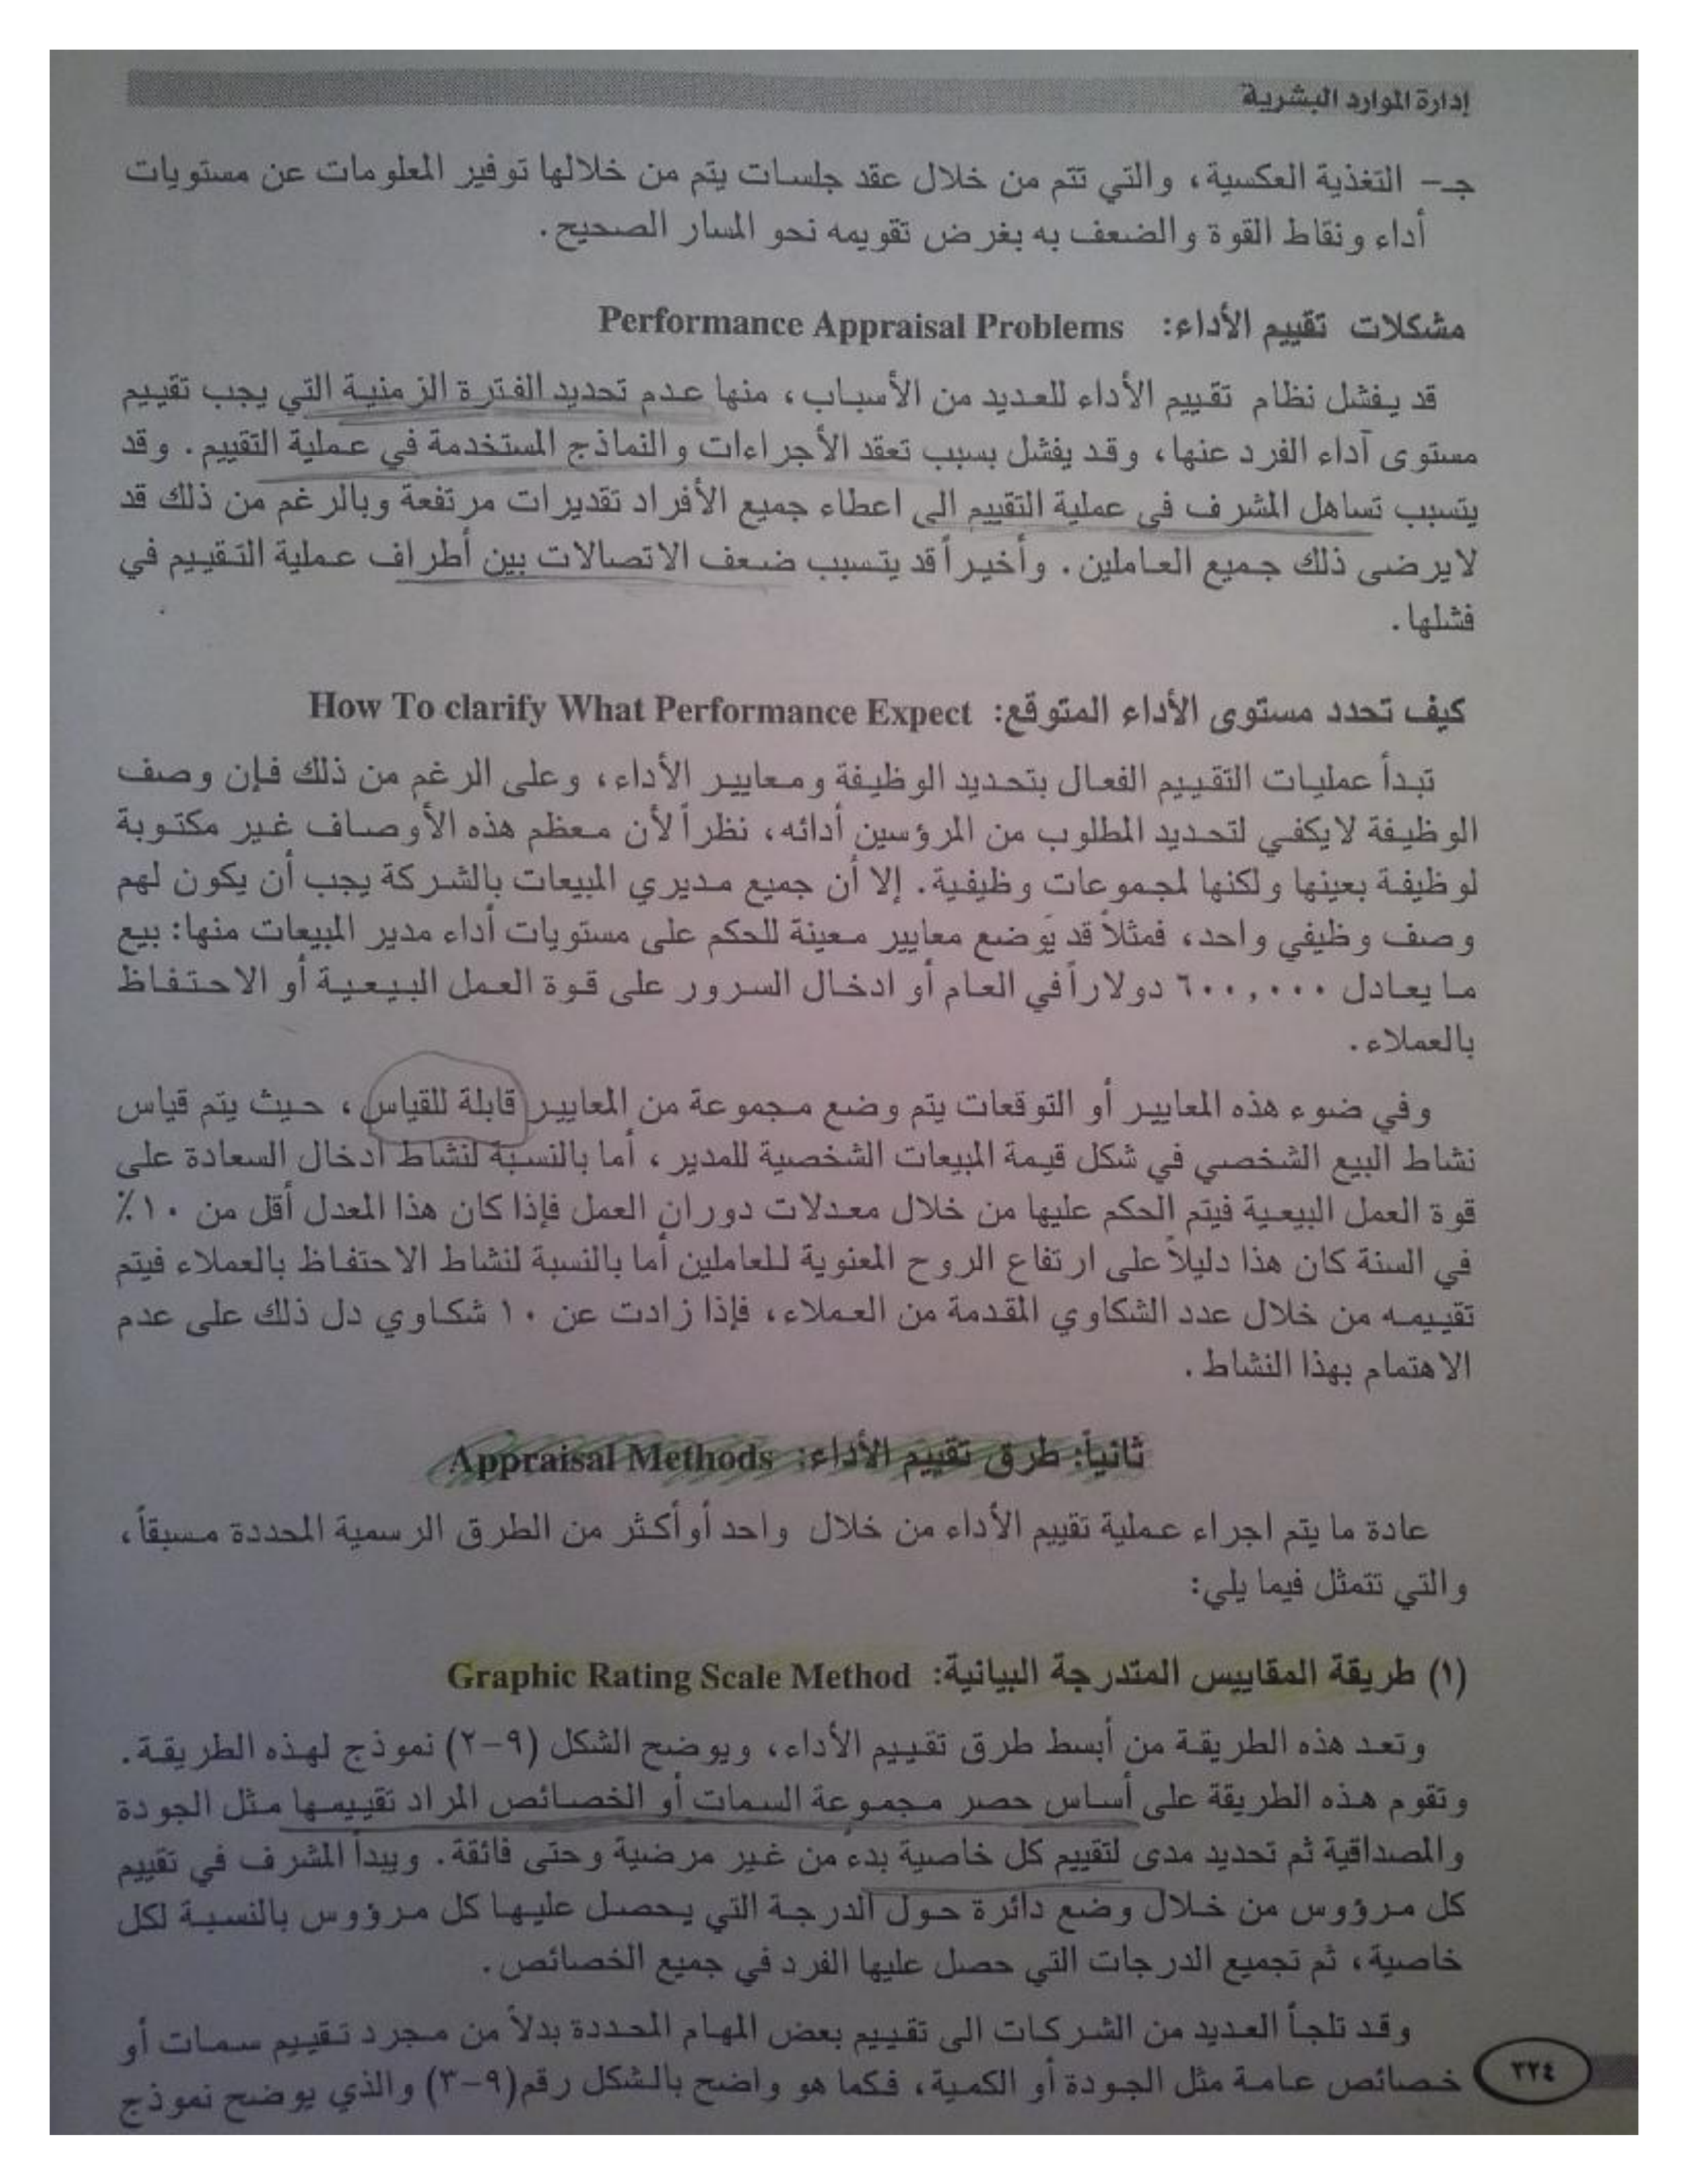 إدارة الموارد البشرية
جـ- التغذية العكسية، والتي تتم من خلال عقد جلسات يتم من خلالها توفير المعلومات عن مستويات
أداء ونقاط القوة والضعف به بغرض تقويمه نحو المسار الصحيح.
مشكلات تقييم الأداء: Performance Appraisal Problems
قد يفشل نظام تقييم الأداء للعديد من الأسباب، منها عدم تحديد الفترة الزمنية التي يجب تقييم
مستوى آداء الفرد عنها، وقد يفشل بسبب تعقد الأجراءات والنماذج المستخدمة في عملية التقييم. وقد
يتسبب تساهل المشرف في عملية التقييم الى اعطاء جميع الأفراد تقديرات مرتفعة وبالرغم من ذلك قد
لايرضى ذلك جميع العاملين. وأخيراً قد يتسبب ضعف الاتصالات بين أطراف عملية التقييم في
فشلها.
كيف تحدد مستوى الأداء المتوقع: How To clarify What Performance Expect
تبدأ عمليات التقييم الفعال بتحديد الوظيفة ومعايير الأداء، وعلى الرغم من ذلك فإن وصف
الوظيفة لايكفي لتحديد المطلوب من المرؤسين أدائه، نظراً لأن معظم هذه الأوصاف غير مكتوبة
لوظيفة بعينها ولكنها لمجموعات وظيفية. إلا أن جميع مديري المبيعات بالشركة يجب أن يكون لهم
وصف وظيفي واحد، فمثلاً قد يَوضع معايير معينة للحكم على مستويات أداء مدير المبيعات منها: بيع
ما يعادل ٦٠٠,٠٠٠ دولاراً في العام أو ادخال السرور على قوة العمل البيعية أو الاحتفاظ
بالعملاء.
وفي ضوء هذه المعايير أو التوقعات يتم وضع مجموعة من المعايير قابلة للقياس، حيث يتم قياس
نشاط البيع الشخصي في شكل قيمة المبيعات الشخصية للمدير، أما بالنسبة لنشاط ادخال السعادة على
قوة العمل البيعية فيتم الحكم عليها من خلال معدلات دوران العمل فإذا كان هذا المعدل أقل من ١٠٪
في السنة كان هذا دليلاً على ارتفاع الروح المعنوية للعاملين أما بالنسبة لنشاط الاحتفاظ بالعملاء فيتم
تقييمه من خلال عدد الشكاوي المقدمة من العملاء، فإذا زادت عن ١٠ شكاوي دل ذلك على عدم
الاهتمام بهذا النشاط.
ثانياً: طرق تقييم الأداء: Appraisal Methods
عادة ما يتم اجراء عملية تقييم الأداء من خلال واحد أو أكثر من الطرق الرسمية المحددة مسبقاً،
والتي تتمثل فيما يلي:
(١) طريقة المقاييس المتدرجة البيانية: Graphic Rating Scale Method
وتعد هذه الطريقة من أبسط طرق تقييم الأداء، ويوضح الشكل (٩-٢) نموذج لهذه الطريقة.
وتقوم هذه الطريقة على أساس حصر مجموعة السمات أو الخصائص المراد تقييمها مثل الجودة
والمصداقية ثم تحديد مدى لتقييم كل خاصية بدء من غير مرضية وحتى فائقة. ويبدأ المشرف في تقييم
كل مرؤوس من خلال وضع دائرة حول الدرجة التي يحصل عليها كل مرؤوس بالنسبة لكل
خاصية، ثم تجميع الدرجات التي حصل عليها الفرد في جميع الخصائص.
وقد تلجأ العديد من الشركات الى تقييم بعض المهام المحددة بدلاً من مجرد تقييم سمات أو
خصائص عامة مثل الجودة أو الكمية، فكما هو واضح بالشكل رقم (٩-٣) والذي يوضح نموذج
٣٢٤